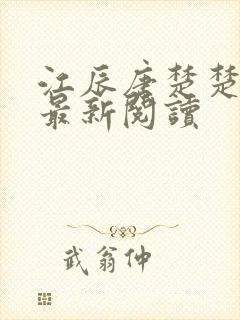 江辰唐楚楚
最新閱讀
武翁仲